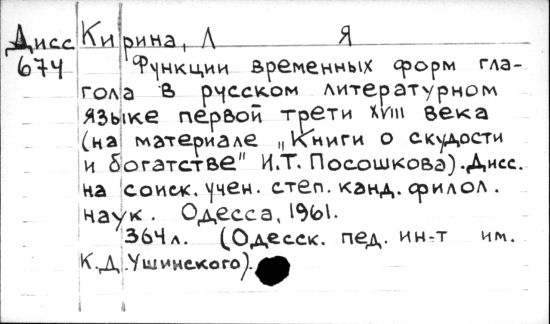 Дисс Кирина, Л Я
674 Функции временных форм гла-
гола в русском литературном
языке первой трети XVIII века
(на материале „Книги о скудости
и богатстве" И.Т. Посошкова). Дисс.
на соиск. учен. степ. канд. филол.
наук. Одесса, 1961.
364л. (Одесск. пед. ин-т им.
К.Д. Ушинского).